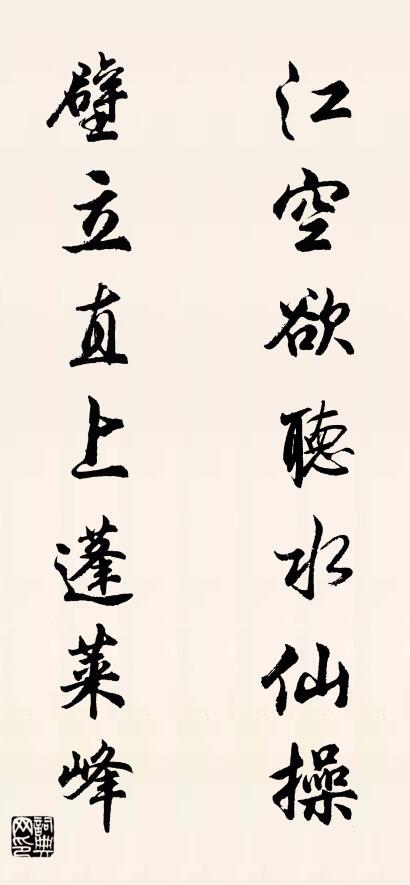 江空欲聽水仙操
壁立直上蓬萊峰
詞典网印